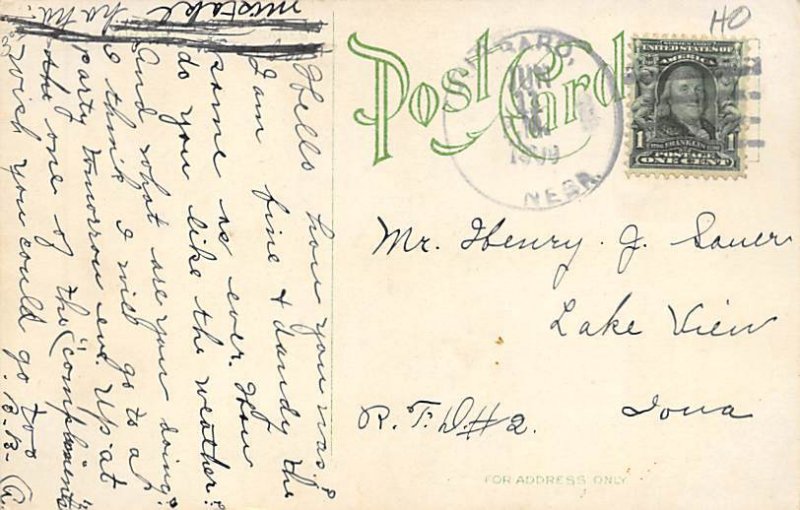 mistake ha ha.
Hello how you was?
I am fine & dandy the
same as ever. How
do you like the weather?
And what are you doing?
I think I will go to a
party tomorrow eve. Up at
the one of the "compliments"
wish you could go too
B.B.
Post Card
JUN
1909
NEBR.
HO
UNITED STATES OF
AMERICA
1 1
FRANKLIN
POSTAGE
ONE CENT
Mr. Henry. J. Sauer
Lake View
Iowa
R.F.D.#2.
FOR ADDRESS ONLY